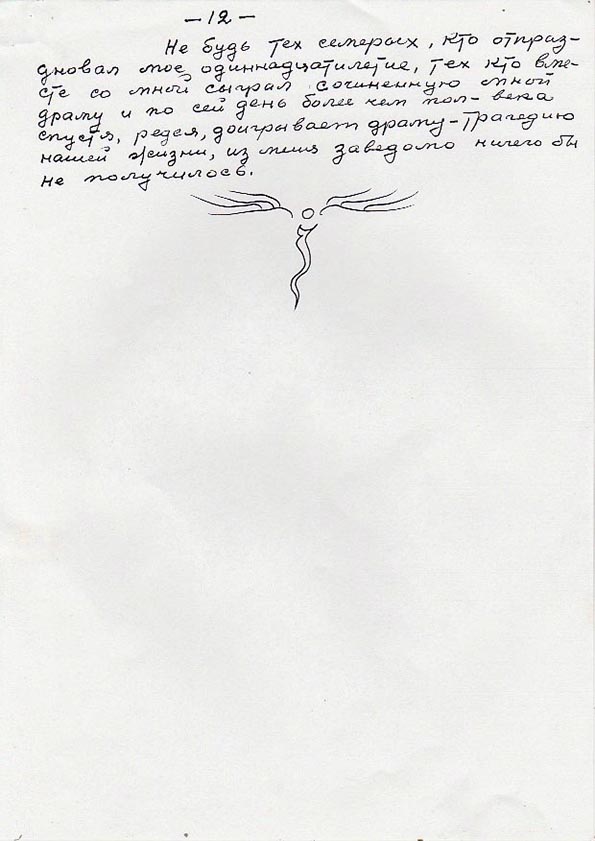 -12-
Не будь тех семерых, кто отпраз-
дновал мое одиннадцатилетие, тех кто вме-
сте со мной сыграл сочиненную мной
драму и по сей день более чем пол-века
спустя, редея, доигрывает драму-трагедию
нашей жизни, из меня заведомо ничего бы
не получилось.